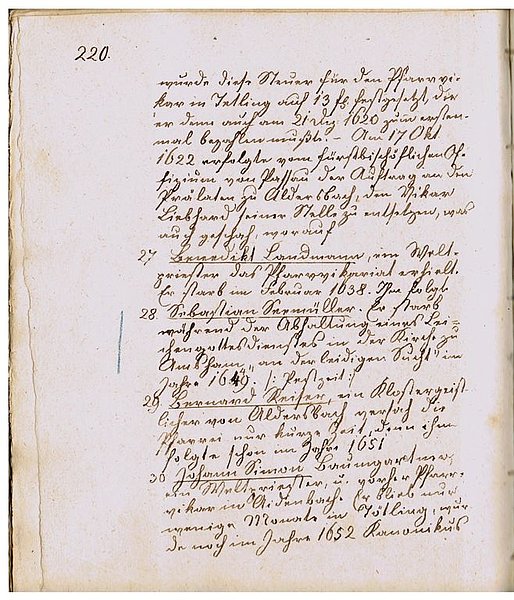 220.
wurde diese Steuer für den Pfarrvi-
kar in Tetling auf 13 fl. festgesetzt, die
er denn auch am 21 Dez. 1620 zum ersten-
mal bezahlen mußte. – Am 17 Okt
1622 erfolgte vom fürstbischöflichen Of-
fizium von Passau der Auftrag an den
Prälaten zu Aldersbach, den Vikar
Liebhard seiner Stelle zu entsetzen, was
auch geschah, worauf
27 Benedikt Landmann, ein Welt-
priester das Pfarrvikariat erhielt.
Er starb im Februar 1638. Ihm folgte
28 Sebastian Seemüller. Er starb
während der Abhaltung eines Lei-
chengottesdienstes in der Kirche zu
Amsham „an der leidigen Sucht" im
Jahre 1649. /: Pestzeit :/
29 Bernard Reiser, ein Klostergeist-
licher von Aldersbach versah die
Pfarrei nur kurze Zeit, denn ihm
folgte schon im Jahre 1651
30 Johann Simon Baumgartner,
ein Weltpriester, u. vorher Pfarr-
vikar in Aidenbach. Er blieb nur
wenige Monate in Tötling, wur-
de noch im Jahre 1652 Kanonikus